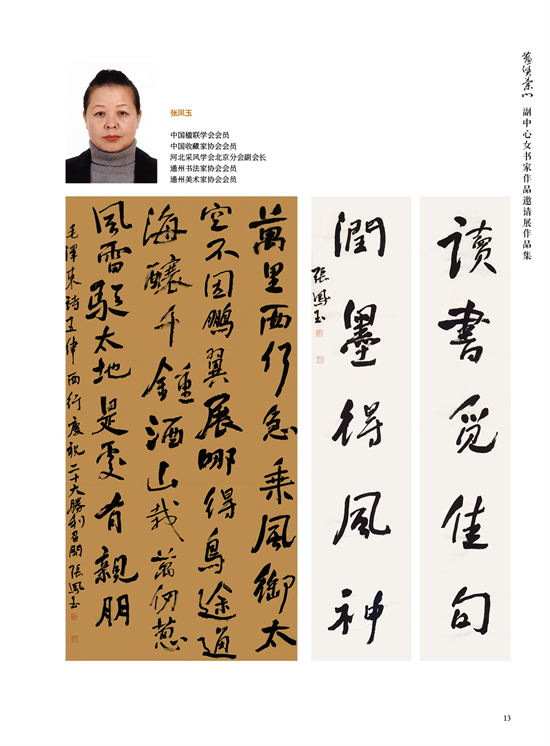 副中心女书家作品邀请展作品集
张凤玉
中国楹联学会会员
中国收藏家协会会员
河北采风学会北京分会副会长
通州书法家协会会员
通州美术家协会会员
讀書覓佳句
潤墨得風神
張鳳玉
萬里西行急乘風御太
空不因鵬翼展哪得鳥途通
海釀千鍾酒山栽萬仞蔥
風雷驅大地是處有親朋
毛澤東詩五律西行慶祝二十大勝利召開張鳳玉
13